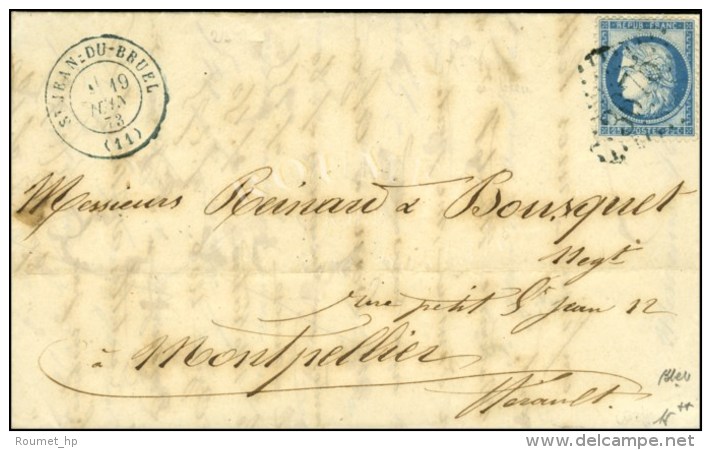 ST JEAN-DU-BRUEL
19
JUIN
73
(11)
REPUB. FRANC.
25 POSTES 25
Messieurs Reinard & Bousquet
Negt
rue petit St Jean 12
à Montpellier
Hérault.
Bleu
Roumet_hp
www.delcampe.net